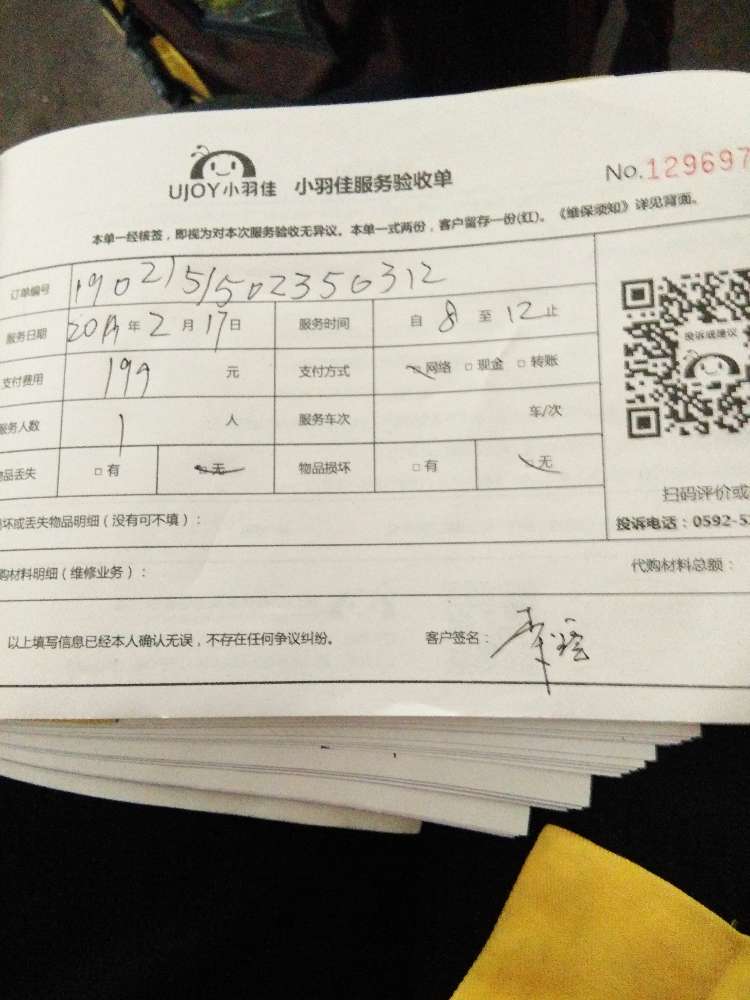 UJOY小羽佳 小羽佳服务验收单 No.129697
本单一经核签，即视为对本次服务验收无异议。本单一式两份，客户留存一份(红)。《维保须知》详见背面。
订单编号 190215150235０312
服务日期 2019年2月17日 服务时间 自8至12止
支付费用 199 元 支付方式 网络 □现金 □转账
服务人数 1 人 服务车次 车/次
品丢失 □有 无 物品损坏 □有 无
投诉或建议
坏或丢失物品明细（没有可不填）：
扫码评价或
投诉电话：0592-5
购材料明细（维修业务）： 代购材料总额：
以上填写信息已经本人确认无误，不存在任何争议纠纷。 客户签名：